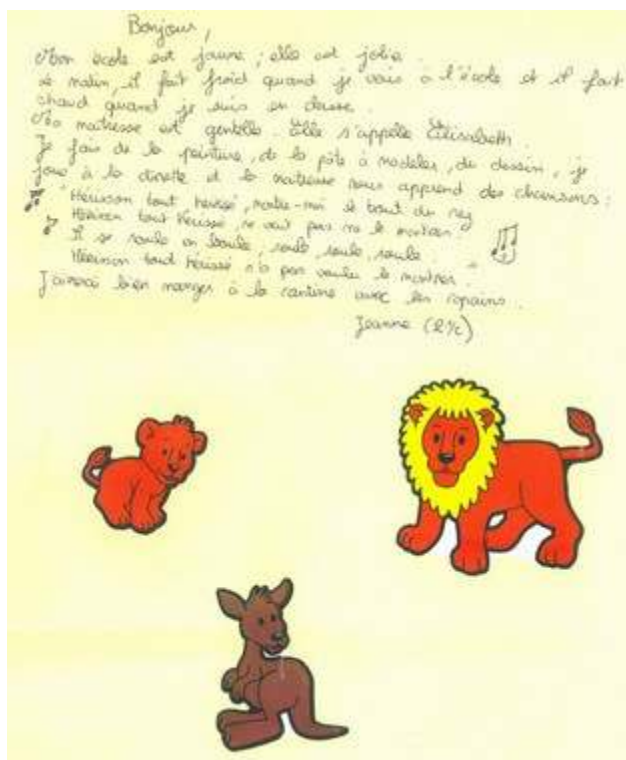 Bonjour,
Mon école est jaune ; elle est jolie.
Le matin, il fait froid quand je vais à l'école et il fait
chaud quand je suis en classe.
Ma maîtresse est gentille. Elle s'appelle Elisabeth.
Je fais de la peinture, de la pâte à modeler, du dessin, je
joue à la dinette et la maîtresse nous apprend des chansons :
Hérisson tout hérissé, montre-moi le bout du nez
Hérisson tout hérissé, ne veut pas me le montrer
Il se roule en boule, roule, roule, roule.
Hérisson tout hérissé n'a pas voulu le montrer.
J'aimerai bien manger à la cantine avec les copains.
Jeanne